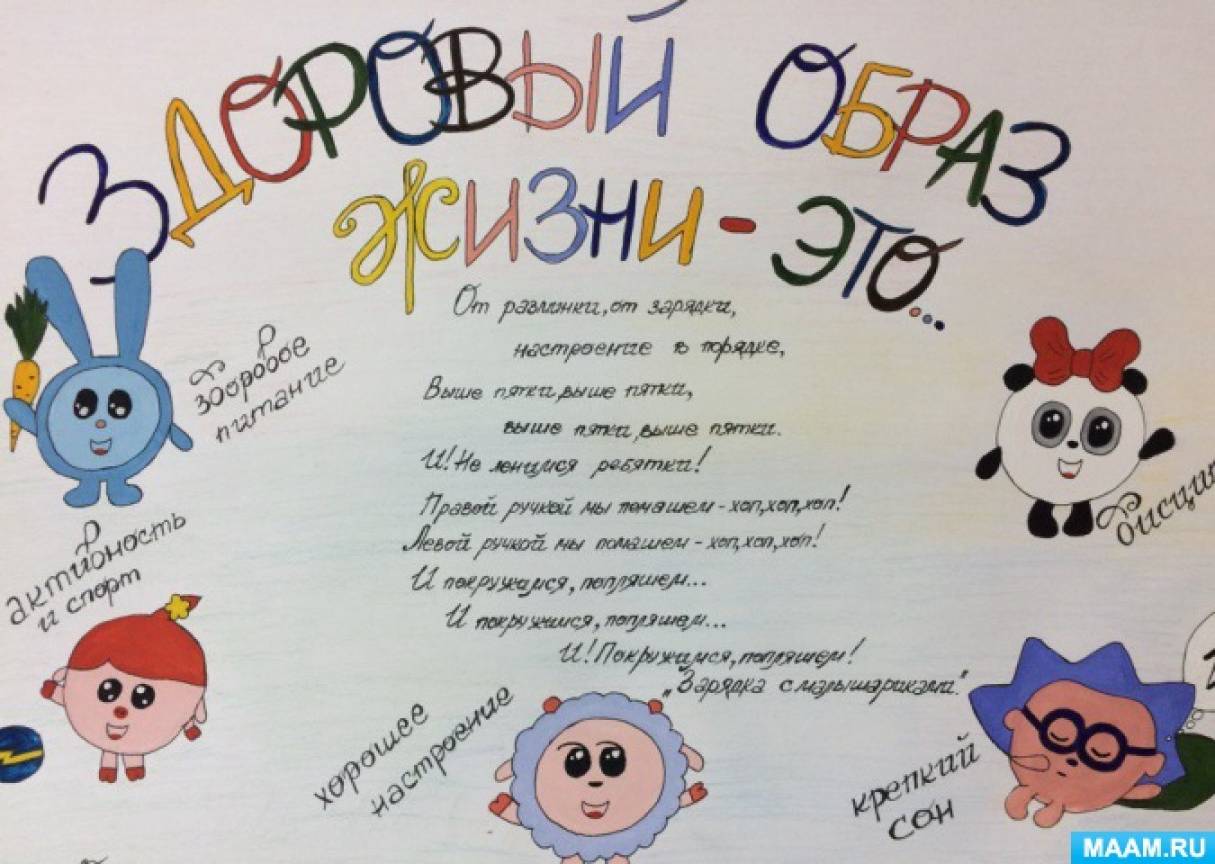 ЗДОРОВЫЙ ОБРАЗ
ЖИЗНИ - ЭТО...
От разминки, от зарядки,
настроение в порядке,
Выше пятки, выше пятки,
выше пятки, выше пятки.
И! Не ленимся ребятки!
Правой ручкой мы помашем - хоп, хоп, хоп!
Левой ручкой мы помашем - хоп, хоп, хоп!
И покружимся, попляшем...
И покружимся, попляшем...
И! Покружимся, попляшем!
"Зарядка с малышариками."
здоровое
питание
активность
и спорт
хорошее
настроение
крепкий
сон
MAAM.RU